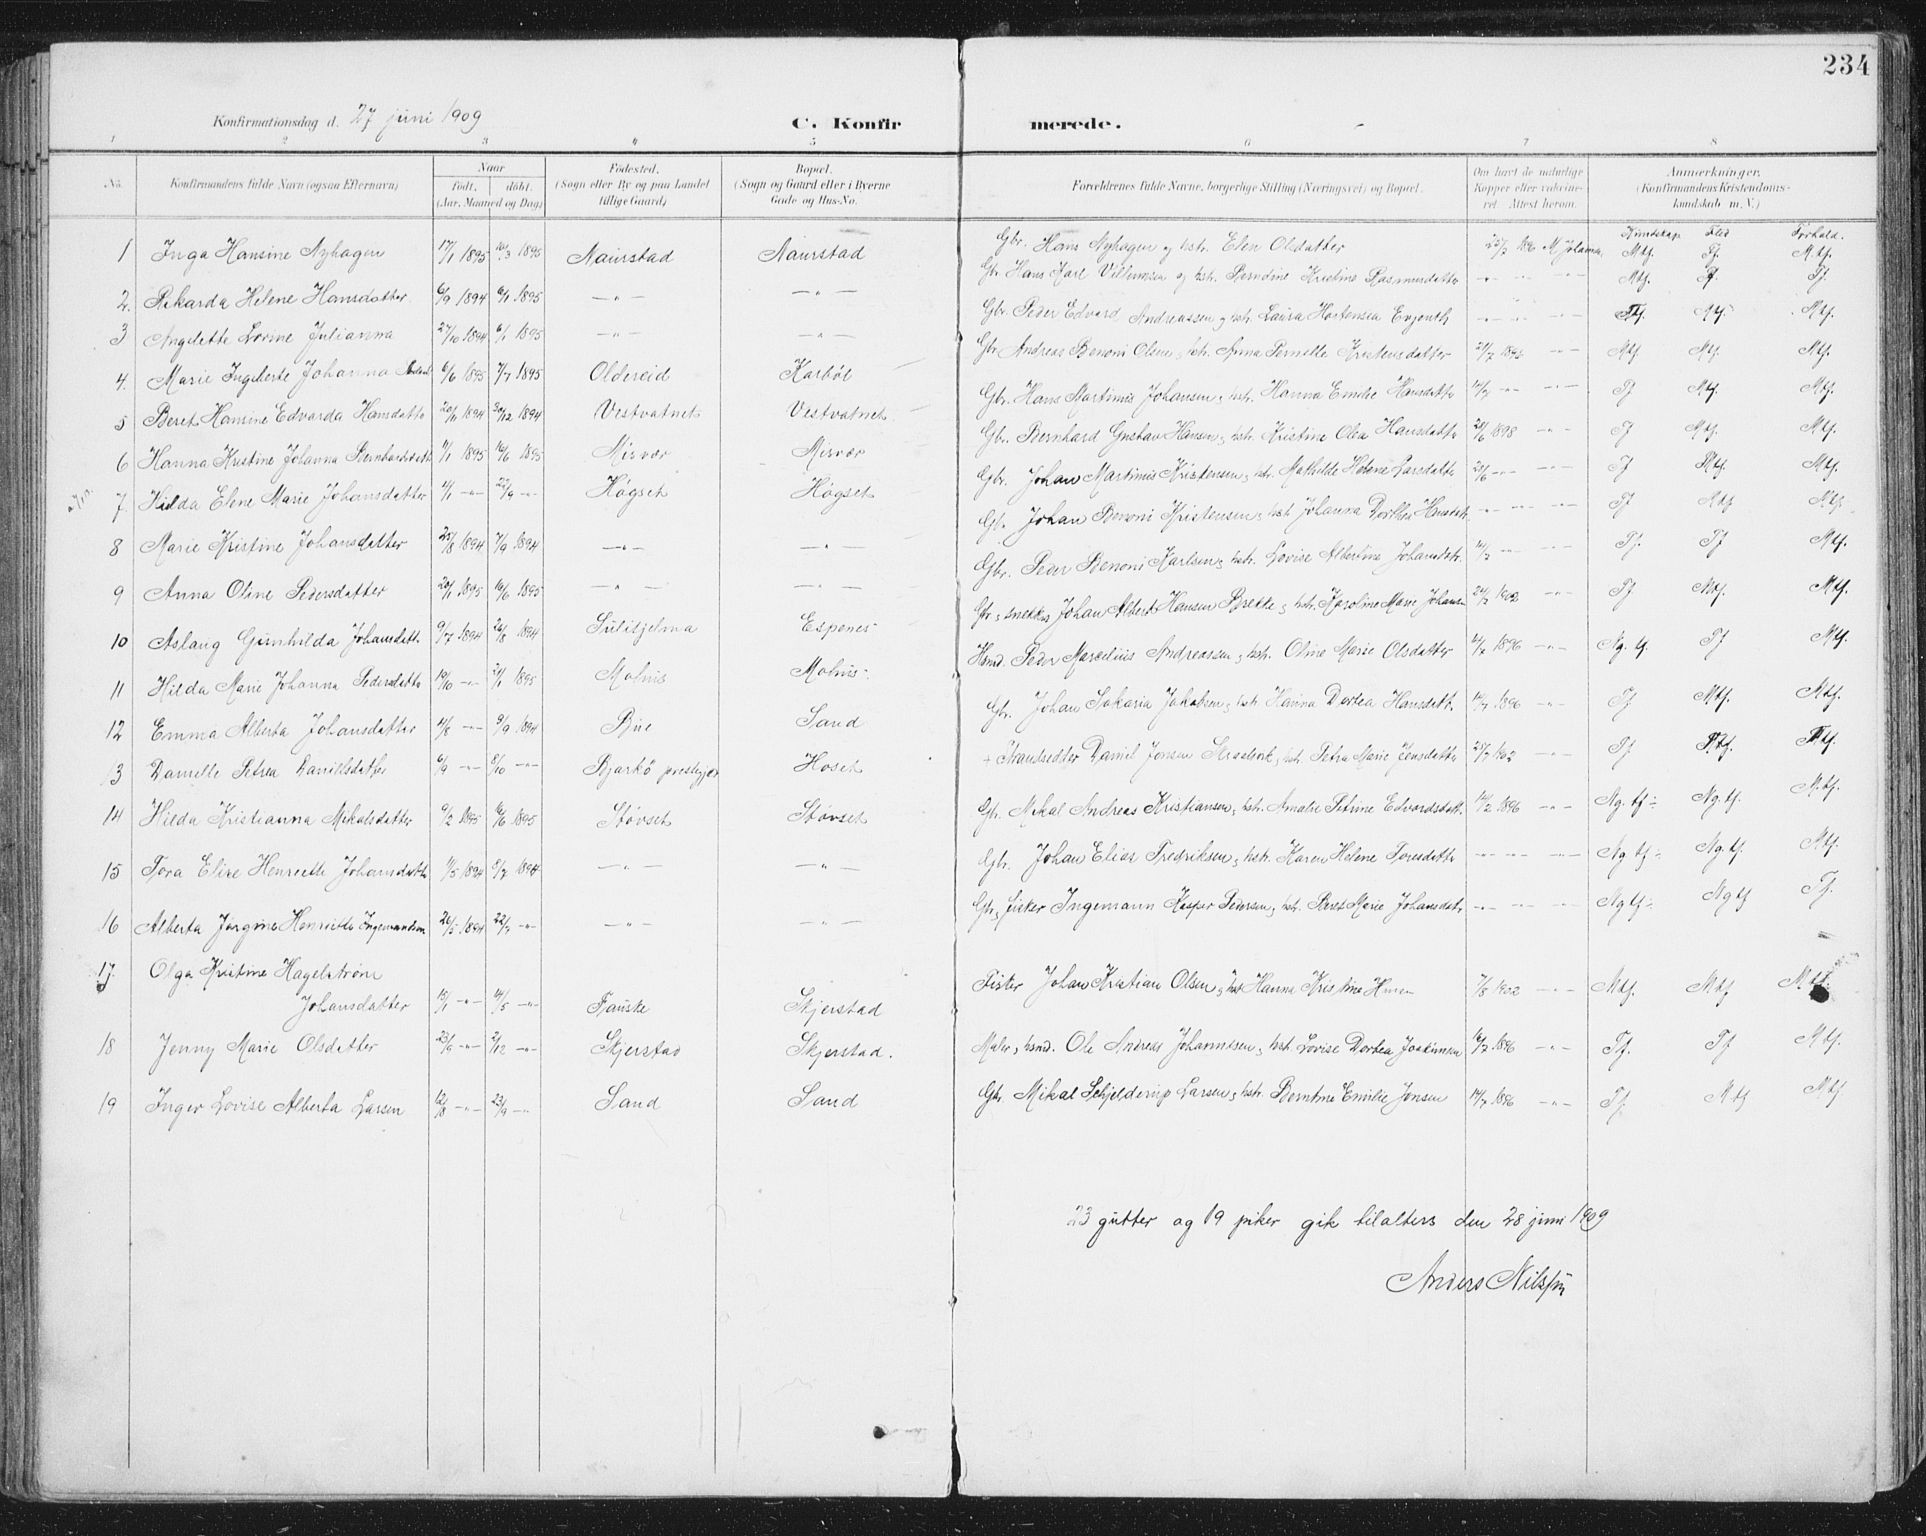 234
Konfirmationsdag d. 27 juni 1909
C. Konfirmerede.
1 2 3 4 5 6 7 8
No. Konfirmandens fulde Navn (ogsaa Efternavn) Naar født. døbt. (Aar, Maaned og Dag) Fødested. (Sogn eller By og paa Landet tillige Gaard) Bopæl. (Sogn og Gaard eller i Byerne Gade og Hus-No. Forældrenes fulde Navne, borgerlige Stilling (Næringsvei) og Bopæl. Om havt de naturlige Kopper eller vaccineret. Attest herom. Anmerkninger. (Konfirmandens Kristendomskundskab m. V.)
Kundskap Flid Forhold.
1 Inga Hansine Nyhagen 17/1 1895 10/3 1895 Naurstad Naurstad Gbr. Hans Nyhagen og hstr. Elen Olsdatter Mtf. Tf. Mtf.
2. Rikarda Helene Hansdatter 6/9 1894 6/1 1895 —„— —„— Gbr. Hans Karl Villumsen og hstr. Berndine Kristine Rasmusdatter Mtf. Tf. Tf.
3 Angelette Lovine Julianna 27/10 1894 6/1 1895 —„— —„— Gbr. Peder Edvard Andreassen og hstr. Laura Hortensea Enjonth Tf. Mtf. Mtf.
4. Marie Ingeberte Johanna 6/6 1895 7/7 1895 Oldereid Karbøl Gbr. Andreas Benoni Olsen og hstr. Anna Pernelle Kristensdatter Mtf Mtf. Mtf.
5 Beret Hansine Edvarda Hansdatte 20/11 1894 30/12 1894 Vestvatnet Vestvatnet Gbr. Hans Martinus Johansen og hstr. Hanna Emilie Hansdatte Tf Mtf. Mtf.
6 Hanna Kristine Johanna Bernhardsdatt 11/1 1895 16/6 1895 Misvær Misvær Gbr. Bernhard Gustav Hansen og hstr. Kristine Olea Hansdatte 28/6 1898 Tf Mtf. Mtf.
7. Hilda Elene Marie Johansdatter 11/1 —„— 22/9 —„— Høgset Høgset Gbr. Johan Martinus Kristensen og hstr. Mathilde Helene Larsdatte Tf Mtf. Mtf.
8 Marie Kristine Johansdatter 25/8 1894 7/9 1894 —„— —„— Gb. Johan Benoni Kristensen og hst Johanna Dorthea Hansdatr Tf Mtf Mtf.
9 Anna Oline Pedersdatter 20/1 1895 16/6 1895 —„— —„— Gbr. Peder Benoni Karlsen og hstr. Lovise Albertine Johansdtr. Tf. Tf Mtf.
10 Aslaug Gunhilda Johansdatt. 9/7 1894 26/8 1894 Sulitjelma Espenes Gbr. og snekker Johan Albert Hansen Brekke og hstr. Karoline Marie Johansen 24/7 1902 Tf Mtf. Mtf.
11 Hilda Marie Johanna Pedersdatte 19/10 —„— 1/1 1895 Molnis Molnis Hsmd. Peder Marcelius Andreassen og hstr. Oline Marie Olsdatter 14/7 1896 Ng. tf. Tf Mtf.
12 Emma Alberta Johansdatter 4/8 —„— 9/9 1894 Bue Sand Gbr. Johan Sakaria Jakobsen og hstr. Hanna Dortea Hansdatt. 14/7 1896 Tf Mtf. Mtf.
13 Danielle Petrea Danielsdatter 6/9 —„— 8/10 —„— Bjarkø prestegjæl Hoset + Strandsidder Daniel Jensen og hstr. Petra Marie Jensdatter 25/7 1902 Tf Mtf. Mtf.
14 Hilda Kristianna Mikalsdatter 9/2 1895 16/6 1895 Støvset Støvset Gbr. Mikal Andreas Kristiansen og hstr. Amalie Petrine Edvardsdatt. 14/7 1896 Ng. tf. Ng. tf. Mtf.
15 Tora Elise Henriette Johansdatte 11/5 1894 8/7 1894 —„— —„— Gbr. Johan Elias Fredriksen og hstr. Karen Helene Toresdatte Ng tf. Ng. tf. Mtf.
16 Alberta Jørgine Henriette Ingemansen 26/5 1894 22/7 —„— —„— —„— Gbr. og fisker Ingemann Kasper Pedersen og hstr. Beret Marie Johansdatr Ng tf. Ng tf Tf.
17. Olga Kristine Hagelstrøm
Johansdatter 15/1 —„— 14/5 —„— Fauske Skjerstad Fisker Johan Kristian Olsen og hstr Hanna Kristine 7/8 1902 Mtf. Mtf Mtf.
18 Jenny Marie Olsdatter 23/9 —„— 2/12 —„— Skjerstad Skjerstad. Maler og hsmd. Ole Andreas Johannesen og hstr Lovise Dortea Joakimsen 16/7 1896 Tf. Tf Mtf.
19 Inger Lovise Alberta Larsen 12/8 —„— 23/9 —„— Sand Sand Gbr. Mikal Schjelderup Larsen og hstr. Berntine Emilie Jensen 14/7 1896 Tf. Mtf Mtf
23 gutter og 19 piker gik tilalters den 28 juni 1909
Anders Nilssen